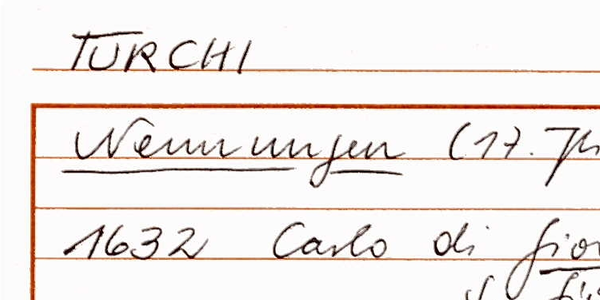 TURCHI
Nennungen (17. Jh
1632 Carlo di Gio